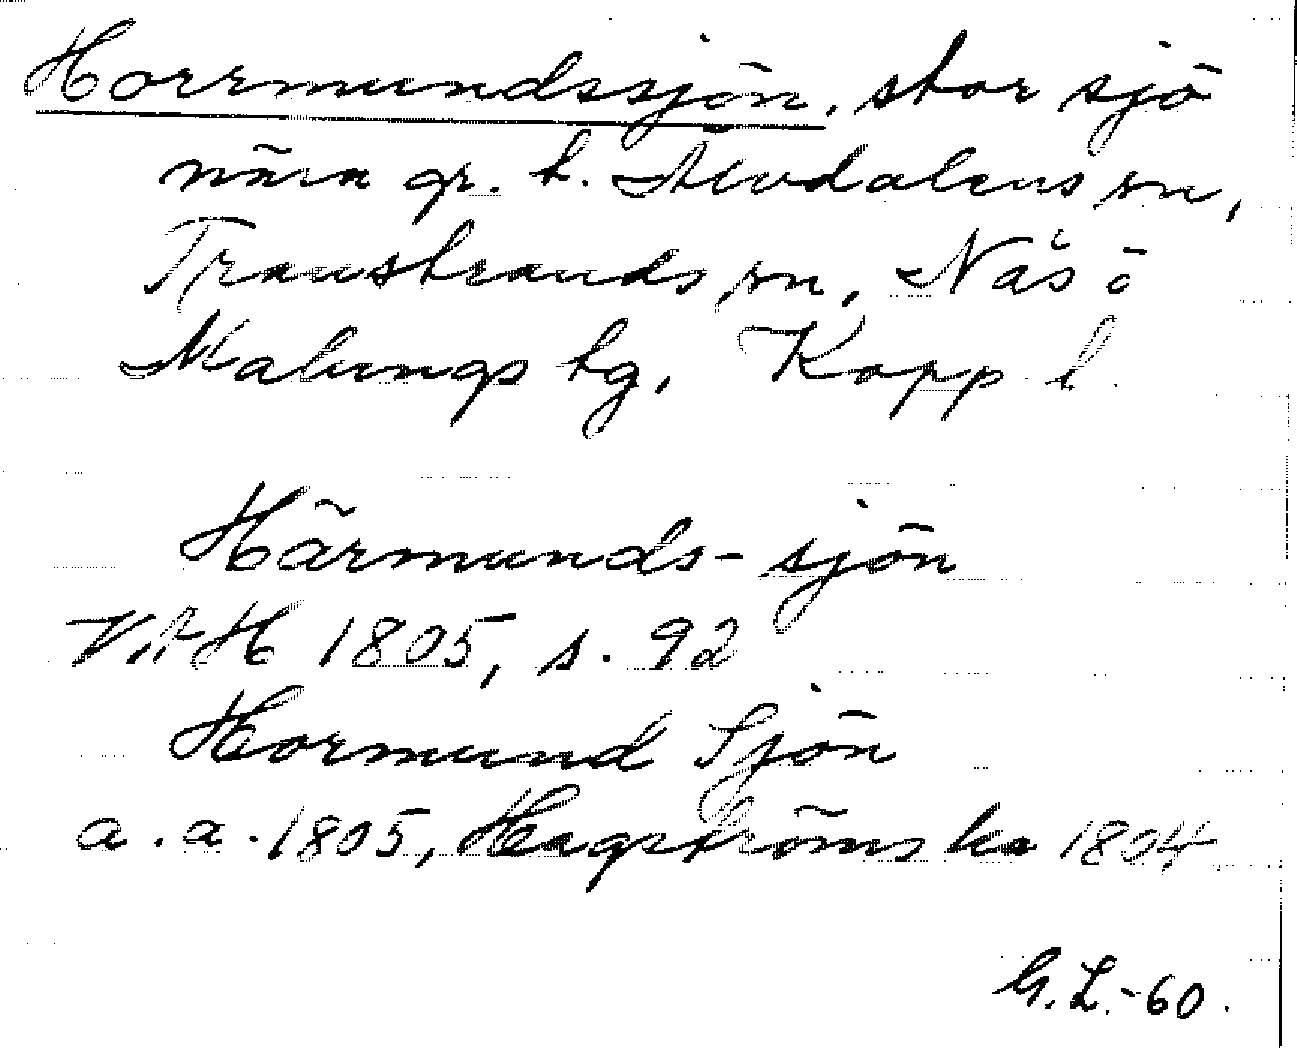 Horrmundssjön, stor sjö
nära gr. t. Älvdalens sn,
Transtrands sn, Nås o
Malungs tg, Kopp l.
Härmunds-sjön
VAH 1805, s. 92
Hormund Sjön
a.a. 1805, Hagströms ka 1804
G.L.-60.